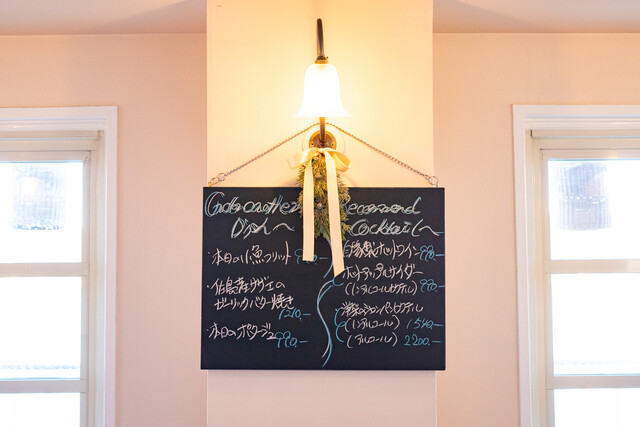 Dish〜
・本日の小魚フリット 990.-
・佐島産サザエの
ガーリックバター焼き
1210.-
・本日のポタージュ
990.-
Recommend
Cocktail〜
自家製ホットワイン 990.-
ホットアップルサイダー
(ノンアルコールカクテル) 990.-
(ノンアルコール) 1540.-
(アルコール) 2200.-